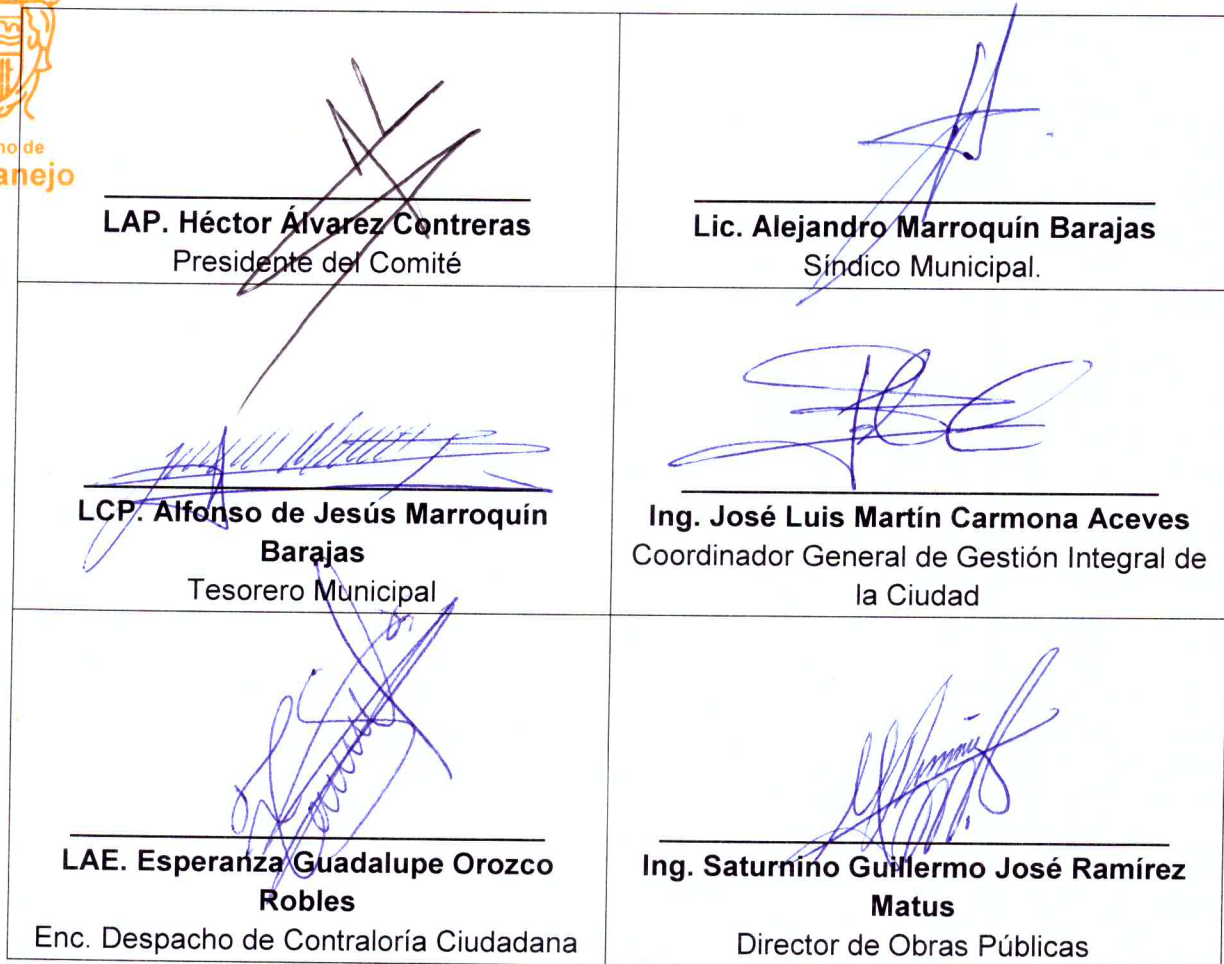 no de
anejo
LAP. Héctor Álvarez Contreras
Presidente del Comité
Lic. Alejandro Marroquín Barajas
Síndico Municipal.
LCP. Alfonso de Jesús Marroquín
Barajas
Tesorero Municipal
Ing. José Luis Martín Carmona Aceves
Coordinador General de Gestión Integral de
la Ciudad
LAE. Esperanza Guadalupe Orozco
Robles
Enc. Despacho de Contraloría Ciudadana
Ing. Saturnino Guillermo José Ramírez
Matus
Director de Obras Públicas